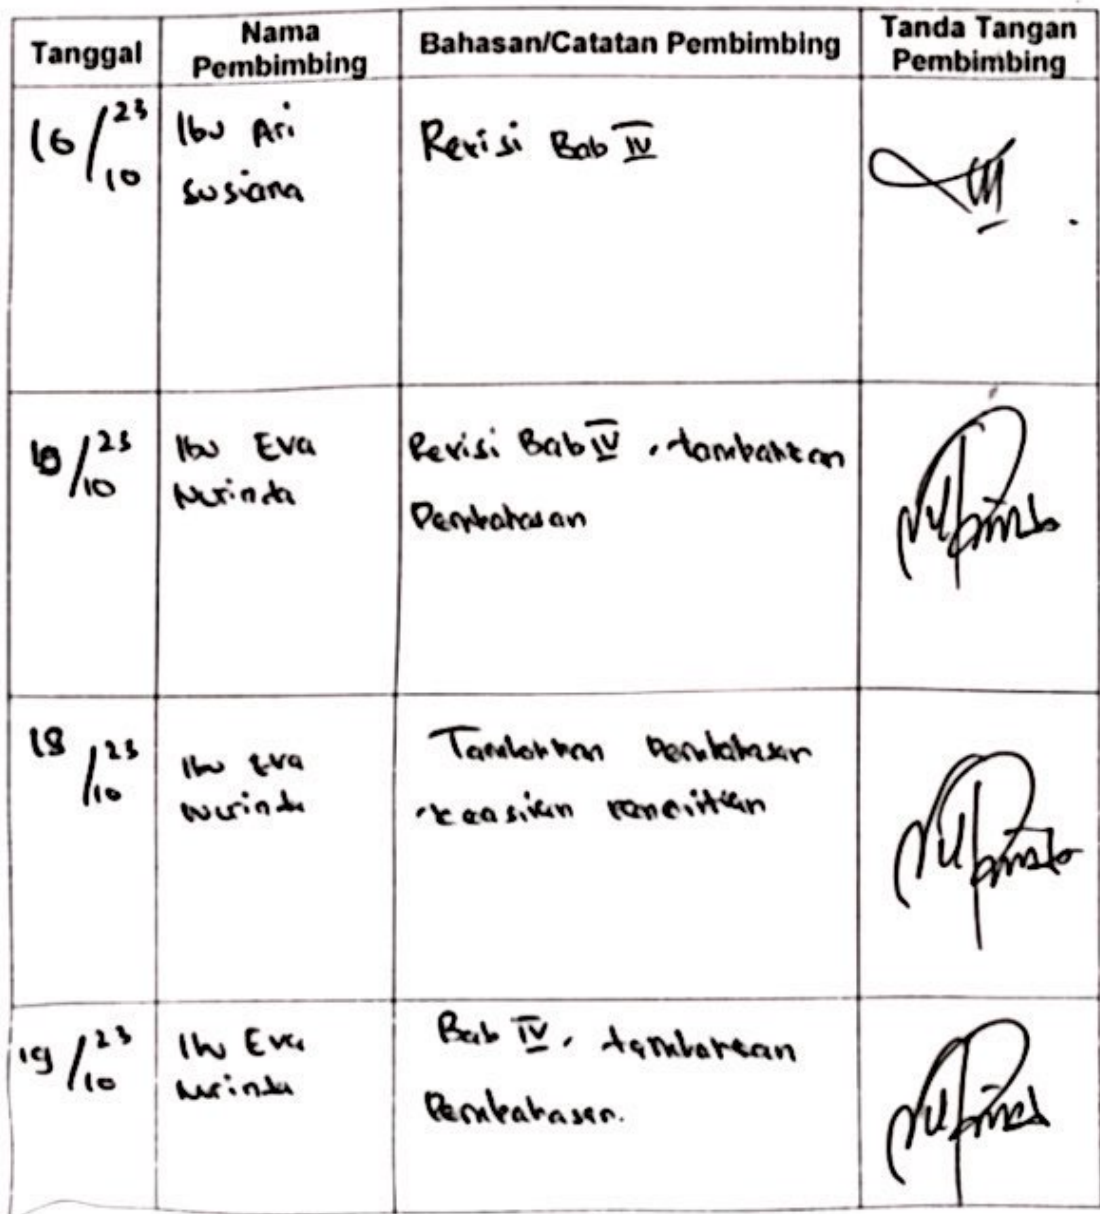 Tanggal
Nama Pembimbing
Bahasan/Catatan Pembimbing
Tanda Tangan Pembimbing
16/10 23
Ibu Ari
Susiana
Revisi Bab IV
/10 23
Ibu Eva
Nurinda
Revisi Bab IV, tambahkan
Pembahasan
18/10 23
Ibu Eva
Nurinda
Tambahkan Pembahasan
19/10 23
Ibu Eva
Nurinda
Bab IV, tambahkan
Pembahasan.